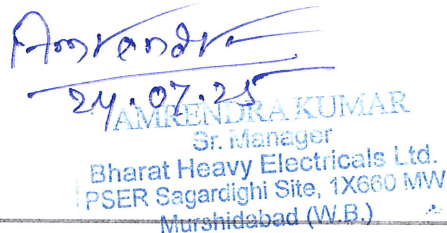 Amrendra
24.07.25
AMRENDRA KUMAR
Sr. Manager
Bharat Heavy Electricals Ltd.
PSER Sagardighi Site, 1X660 MW
Murshidabad (W.B.)